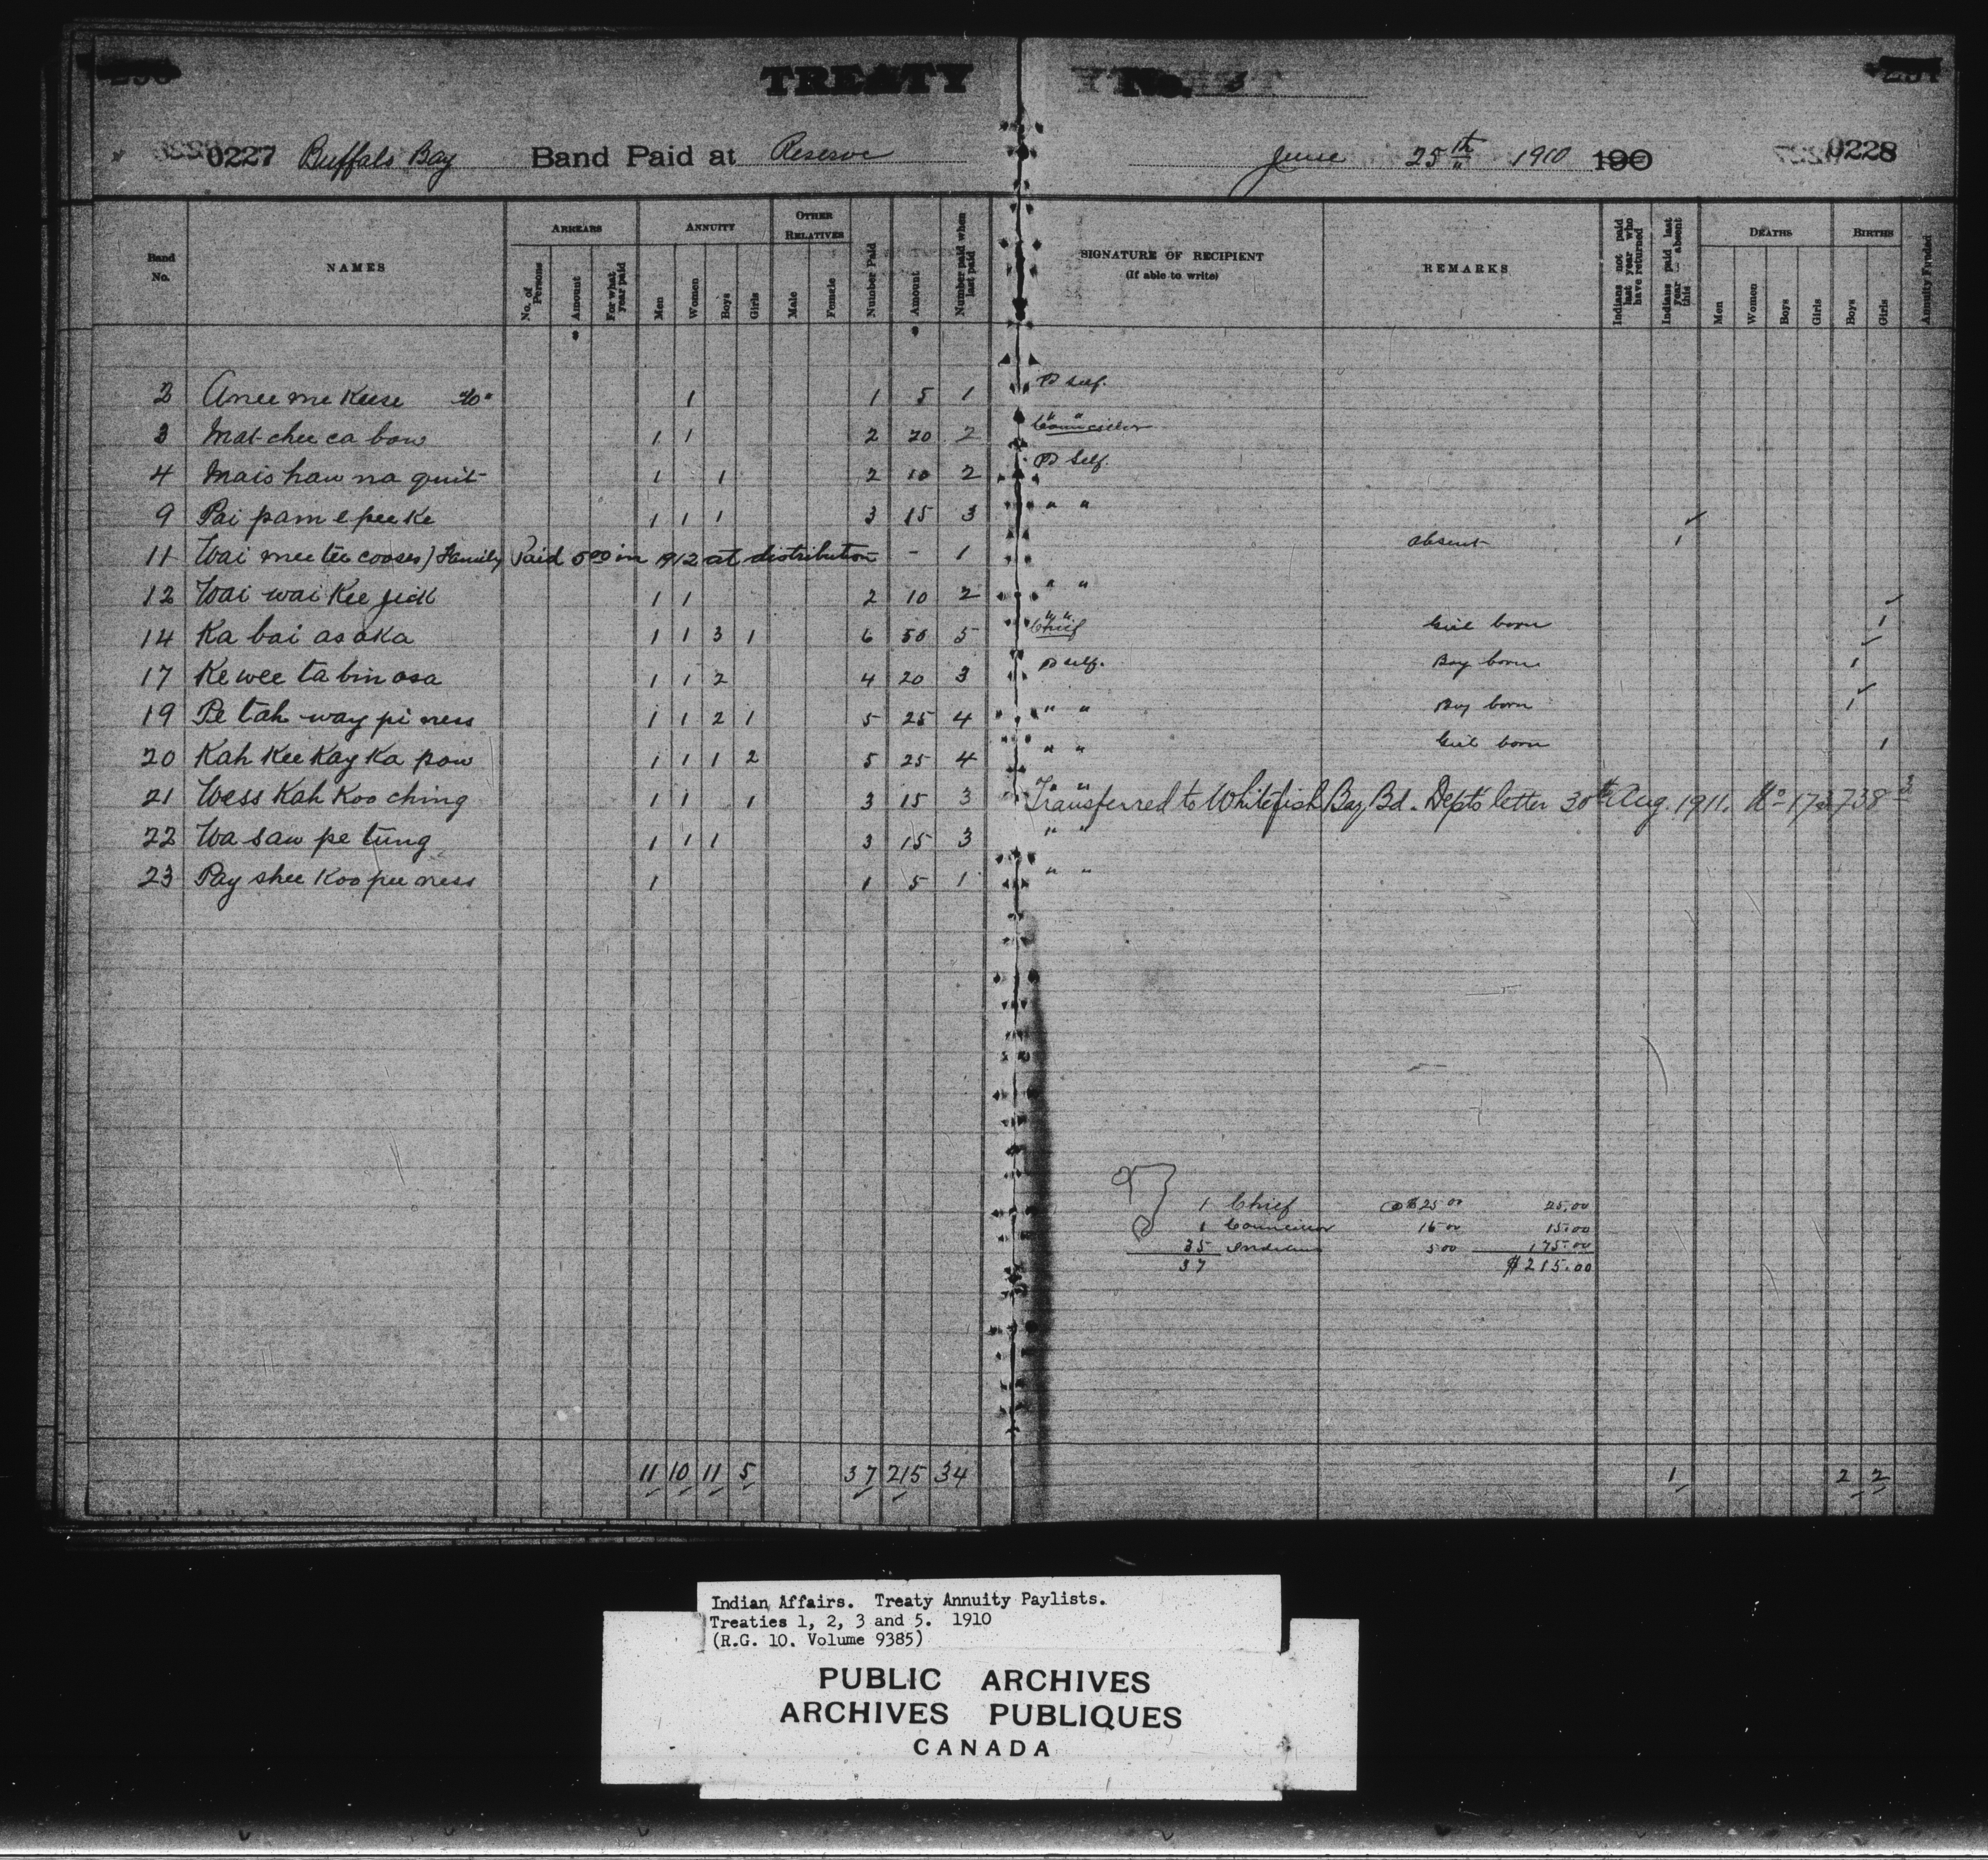 TREATY No. 3
0227 Buffalo Bay Band Paid at Reserve June 25th 1910 190 0228
Band No. NAMES ARREARS No. of Persons Amount For what year paid ANNUITY Men Women Boys Girls OTHER RELATIVES Male Female Number Paid Amount Number paid when last paid SIGNATURE OF RECIPIENT (If able to write) REMARKS Indians not paid last year who have returned Indians paid last year absent this DEATHS Men Women Boys Girls BIRTHS Boys Girls Annuity Funded
2 Anee me keese 1 1 5 1 Pd Self.
3 Mat chee ca bow 1 1 2 20 2 " " Councillor
4 Mais haw na quit 1 1 2 10 2 Pd Self.
9 Pai pam e pee ke 1 1 1 3 15 3 " "
11 Wai mee tee cooses) Family Paid 5 00 in 1912 at distribution - 1 absent 1
12 Wai wai kee jick 1 1 2 10 2 " "
14 Ka bai as aka 1 1 3 1 6 50 5 " " Chief Girl born 1
17 Ke wee ta bin osa 1 1 2 4 20 3 Pd self. Boy born 1
19 Pe tah way pi ness 1 1 2 1 5 25 4 " " Boy born 1
20 Kah kee kay ka pow 1 1 1 2 5 25 4 " " Girl born 1
21 Wess kah koo ching 1 1 1 3 15 3 " " Transferred to Whitefish Bay Bd. Dept's letter 30th Aug. 1911. No 173738
22 Wa saw pe tung 1 1 1 3 15 3 " "
23 Pay shee koo pee ness 1 1 5 1 " "
1 Chief @ $25 00 25.00
1 Councillor 15 00 15.00
35 Indians 5 00 175.00
37 $215.00
11 10 11 5 37 215 34 1 2 2
Indian Affairs. Treaty Annuity Paylists.
Treaties 1, 2, 3 and 5. 1910
(R.G. 10. Volume 9385)
PUBLIC ARCHIVES
ARCHIVES PUBLIQUES
CANADA